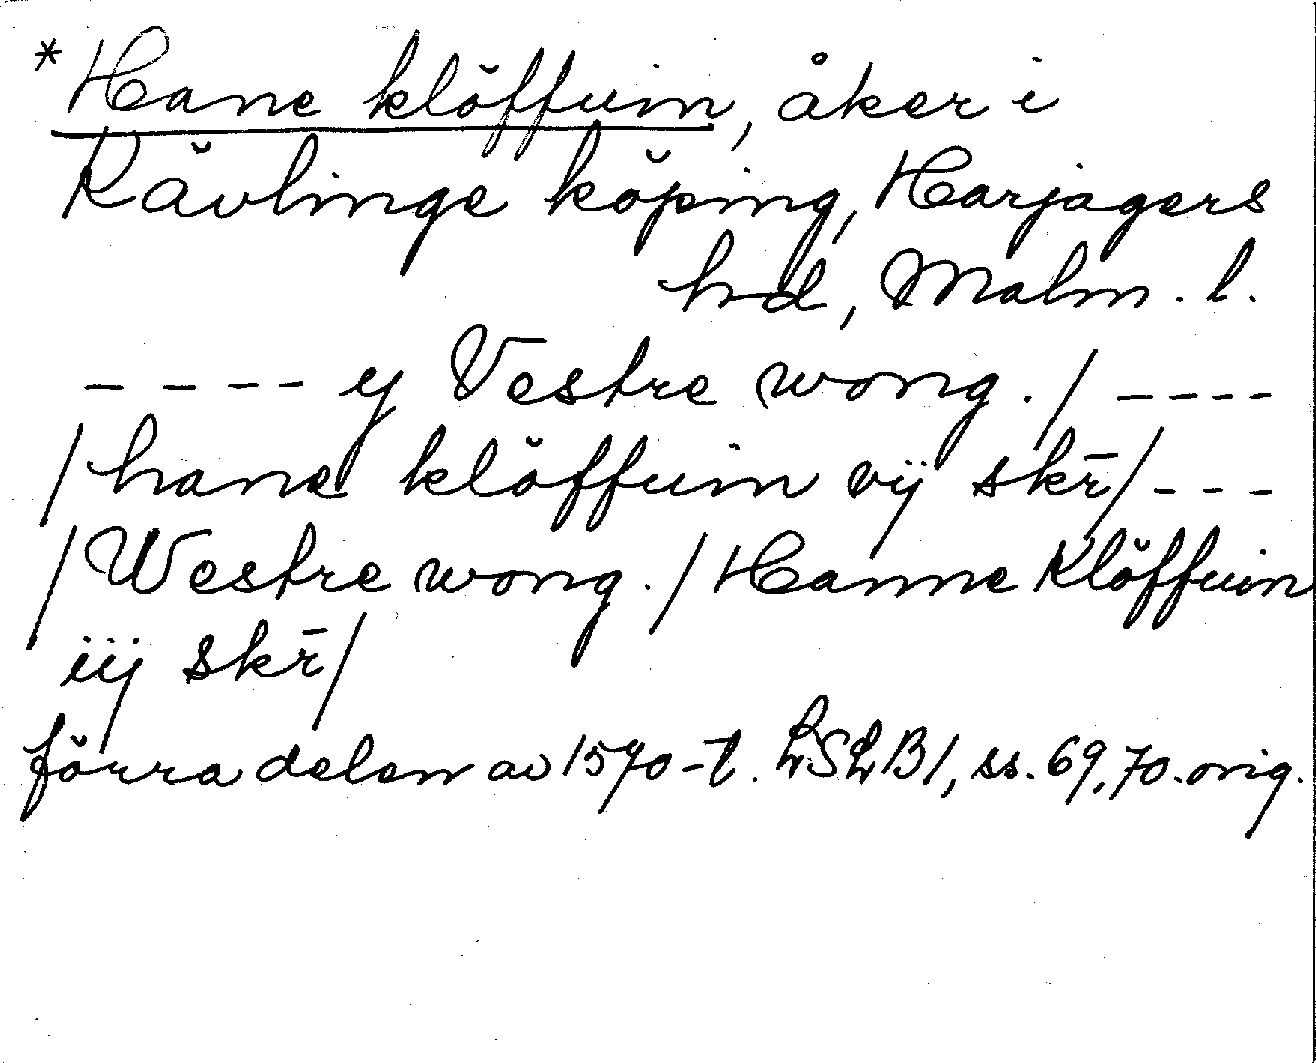 *Hane klöffuin, åker i
Kävlinge köping, Harjagers
hd, Malm. l.
---- y Vestre wong./----
/hane klöffuin vij skr̄/---
/Westre wong./Hanne Klöffuin
iij skr̄/
förra delen av 1570-t. LSLB1, ss. 69,70. orig.